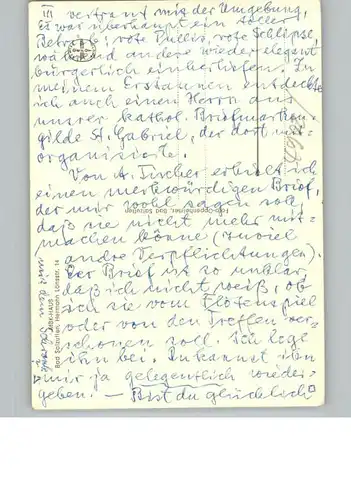 III vertraut mit der Umgebung,
Es war überhaupt ein toller
Betrieb; rote Pullis, rote Schlipse,
während andere wieder elegant
bürgerlich einherliefen. Zu
meinem Erstaunen entdeckte
ich auch einen Herrn aus
unserer kathol. Briefmarken-
gilde St. Gabriel, der dort mit-
organisierte.
Von A. Tischer erhielt ich
einen merkwürdigen Brief,
der mir wohl sagen soll,
daß sie nicht mehr mit-
machen könne (zuviel
andre Verpflichtungen).
Der Brief ist so unklar,
daß ich nicht weiß, ob
ich sie vom Flötenspiel
oder von den Treffen ver-
schonen soll. Ich lege
ihn bei. Du kannst ihn
mir ja gelegentlich wieder-
geben. — Bist du glücklich
mit dem
Bad Salzuflen, Hermann-Löns-Str. 14